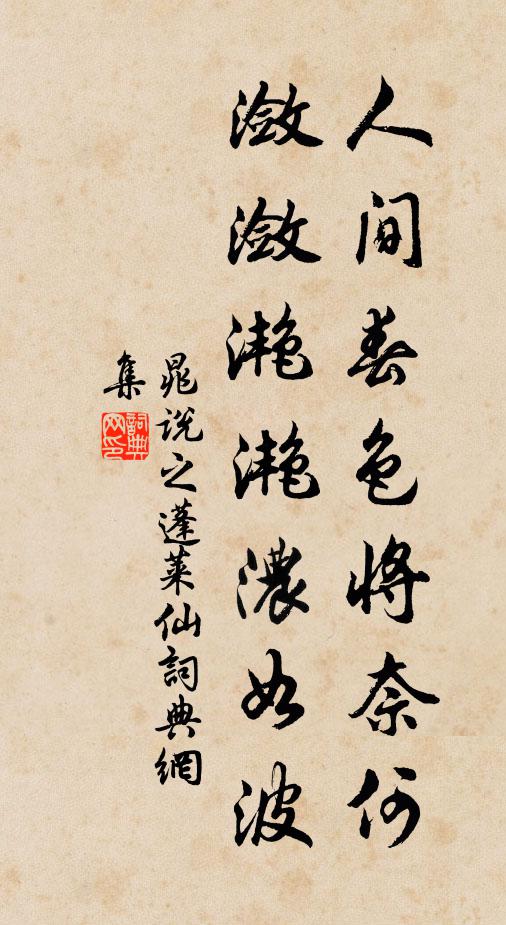 人间春色将奈何
潋潋滟滟濃如波
晁说之蓬莱仙詞典網
集
詞典
网印